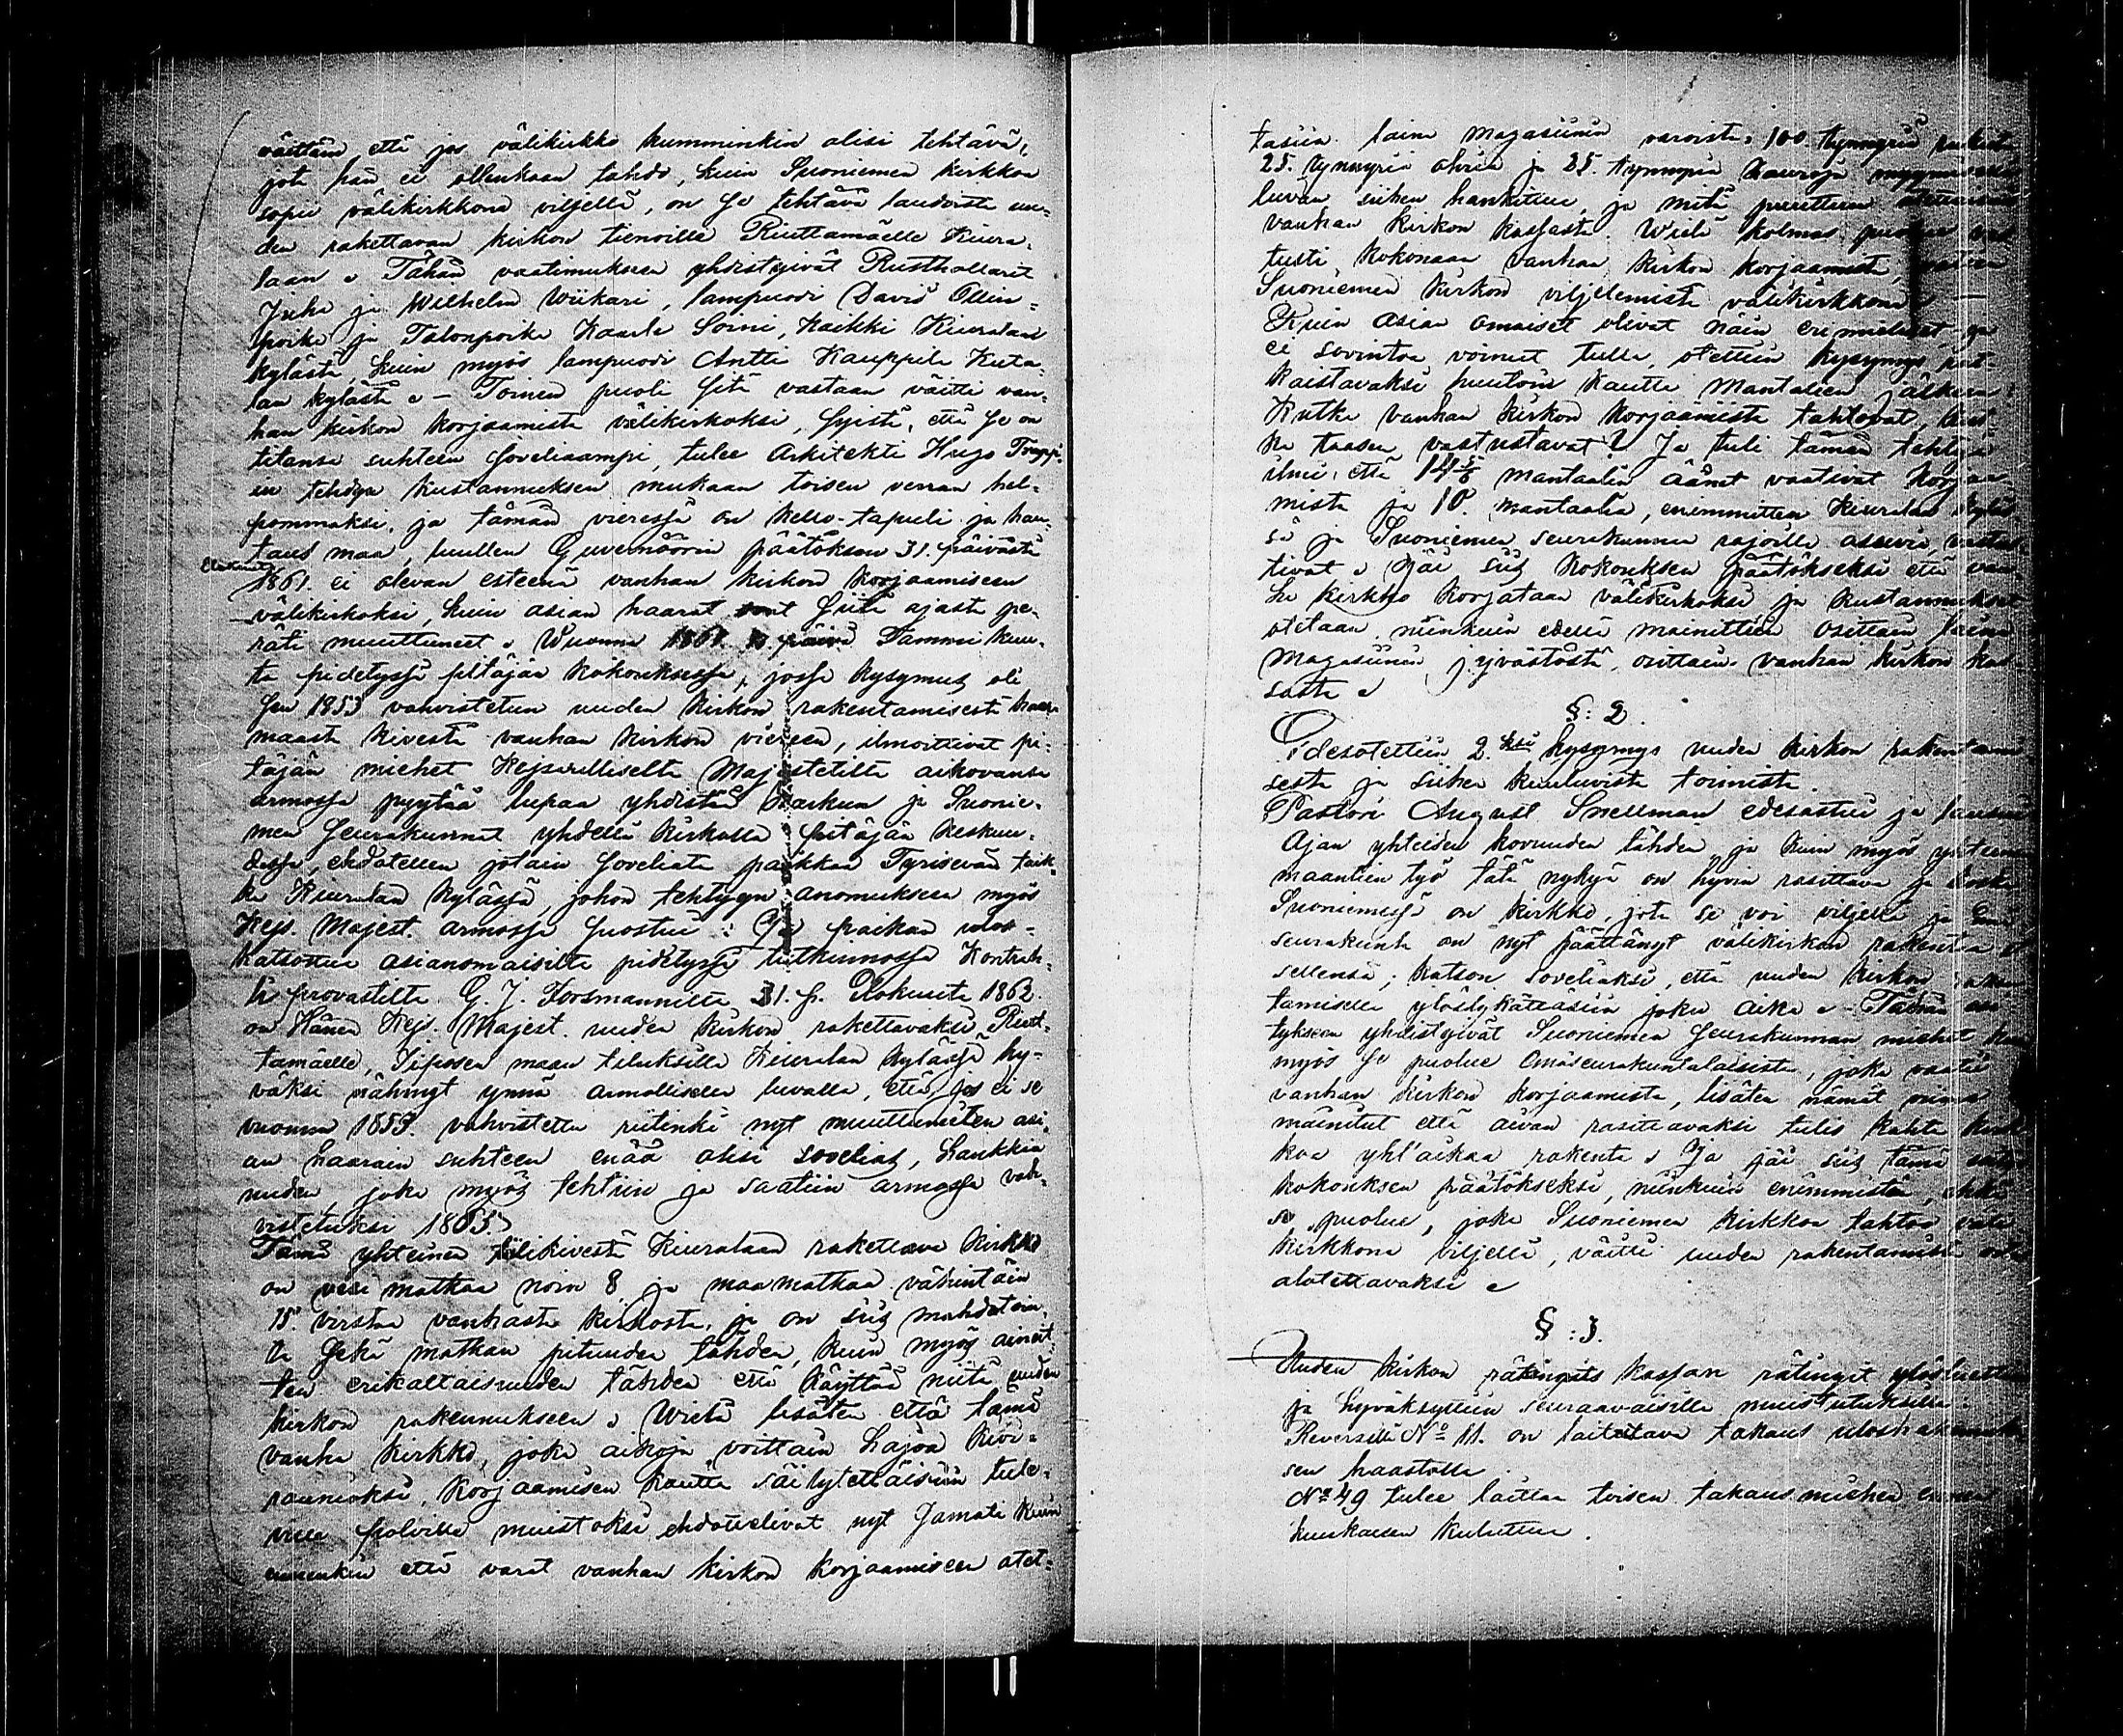 väittäin että jos välikirkko kumminkin olisi tehtävä,
jota hän ei ollenkaan tahdo, kuin Suoniemen kirkkoa
sopii välikirkkona viljellä, on se tehtävä laudoista uu-
den rakettavan kirkon tienoille Riuttamäelle Kiura-
laan. Tähän vaatimukseen yhdistyivät Rusthollarit
Juha ja Wilhelm Wiikari, lampuodi David Ollin-
poika ja Talonpoika Kaarle Soini, kaikki Kiuralan
kylästä kuin myös lampuodi Antti Kauppila Kuta-
lan kylästä. - Toinen puoli sitä vastaan väitti van-
han kirkon korjaamista välikirkoksi, syystä, että se on
titansa suhteen soveliaampi, tulee Arkitekti Hugo
in tehdyn kustannuksen mukaan toisen verran hel-
pommaksi, ja tämän vieressä on kello-tapuli ja hau-
taus maa, luullen Guvernöörin päätöksen 31. päivästä
Elokuuta
1861. ei olevan esteenä vanhan kirkon korjaamiseen
välikirkoksi, kuin asian haarat ovat siitä ajasta pe-
räti muuttuneet. Wuonna 1861. päivä Tammi kuu-
ta pidetyssä pitäjän kokouksessa, jossa kysymys oli
sen 1853 vahvistetun uuden kirkon rakentamisesta
maasta kivestä vanhan kirkon viereen, ilmoittivat pi-
täjän miehet Keisarilliselta Majestetilta aikovansa
armossa pyytää lupaa yhdistää Karkun ja Suonie-
men seurakunnat yhdellä kirkolla pitäjän keskuu-
dessa, ehdotellen jotain soveliata paikkaa Tyrisevän taik-
ka Kiuralan kylässä, johon tehtyyn anomukseen myös
Kejs. Majest. armossa suostui: Ja paikan ulos-
katsottua asianomaisilta pidetyssä tutkinnossa Kontrah-
ti provastilta G. J. Forsmannilta 31. p. Elokuuta 1862.
on Hänen Kejs. Majest. uuden kirkon rakettavaksi Riut-
tamäelle, maan tiluksilla Kiuralan kylässä hy-
väksi nähnyt ynnä armollisella luvalla, että, jos ei se
vuonna 1853. vahvistettu riitinki nyt muuttuneiten asi-
an haarain suhteen enää olisi soveliaz, hankkia
uuden, joka myös tehtiin ja saatiin armossa vah-
vistetuksi 1863.
Tämä yhteinen kivestä Kiuralaan rakettava kirkko
on vesi matkaa noin 8 ja maamatkaa vähintäin
15. virstaa vanhasta kirkosta, ja on siis mahdotoin-
ta sekä matkan pituuden tähden, kuin myös aineit-
ten erikaltaisuuden tähden että käyttää niitä uuden
kirkon rakennukseen. Wielä lisäten että tämä
vanha kirkko, joka aikoja voittain hajoa kivi-
raunioksi, korjaamisen kautta säilytettäisiin tule-
ville polville muistoksi, ehdottelivat nyt samate kuin
ennenkin että varat vanhan kirkon korjaamiseen otet-
taisiin laina Magasiinin varoista, 100 tynnyriä
25. tynnyriä ohria ja 25. tynnyriä kauroja
luvan siihen hankittua, ja mitä puuttuun
vanhan kirkon kassasta. Wielä kolmas puolue
tusti kokonaan vanhan kirkon korjaamista,
Suoniemen kirkon viljelemistä välikirkkona. -
Kuin asian omaiset olivat näin erimieliset, ja
ei sovintoa voinut tulla, otettiin kysymys rat-
kaistavaksi huutoin kautta Mantalien jälkeen:
Kutka vanhan kirkon korjaamista tahtovat,
ka taasen vastustavat? Ja tuli tämän tehtyä
ilmi, että 14 5/8 mantaalin äänet vaativat korjaa-
mista ja 10. mantaalia, enimmitten Kiuralan kyläs-
sä ja Suoniemen seurakunnan rajoilla asuvia, vastus-
tivat. Jäi siis kokouksen päätökseksi että van-
ha kirkko korjataan välikirkoksi ja kustannukset
otetaan niinkuin edellä mainittiin osittain laina
Magasiinin jyvästöstä, osittain vanhan kirkon kas-
sasta.
§: 2.
Edesotettiin 2.ksi kysymys uuden kirkon rakentami-
sesta ja siihen kuuluvista toimista.
Pastori August Snellman edesastui ja lausui
Ajan yhteiden kovuuden tähden ja kuin myös yhteinen
maantien työ tätä nykyä on hyvin rasittava ja koska
Suoniemessä on kirkko, jota se voi viljellä ja Emä
seurakunta on nyt päättänyt välikirkon rakentaa
sellensä; katson soveliaksi, että uuden kirkon raken-
tamisella ylöslykättäisiin joku aika. - Tähän
tykseen yhdistyivät Suoniemen seurakunnan miehet kuin
myös se puolue Emäseurakuntalaisista, joka vaati
vanhan kirkon korjaamista, lisäten nämät
mainitut että aivan rasittavaksi tulis kahta kirk-
koa yht'aikaa rakentaa. Ja jäi siis tämä
kokouksen päätökseksi, niinkuin enimmistön,
se puolue, joka Suoniemen kirkkoa tahtoo väli
kirkkona viljellä, väitti uuden rakentamista
alotettavaksi.
§: 3.
Uuden kirkon rakennus kassan rätingit ylösluettiin
ja hyväksyttiin seuraavaisilla muistutuksilla.
Reversille No 11. on laitettava takaus uloshakemuk-
sen haastolla.
No 49 tulee laittaa toisen takaus miehen ennen
kuukauden kuluttua.